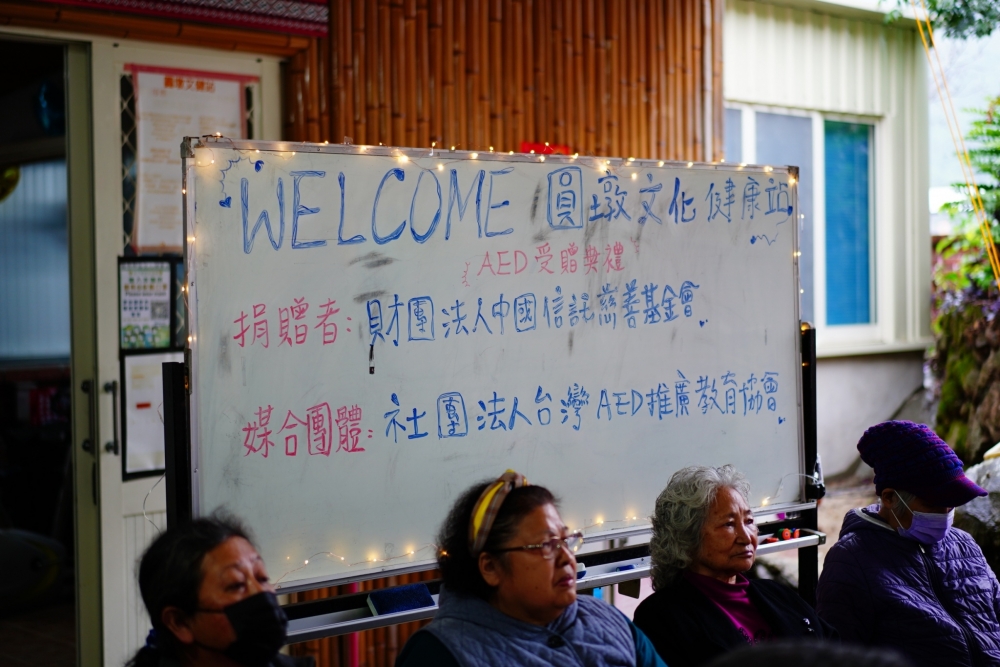 WELCOME 圓墩文化健康站
AED受贈典禮
捐贈者：財團法人中國信託慈善基金會
媒合團體：社團法人台灣AED推廣教育協會